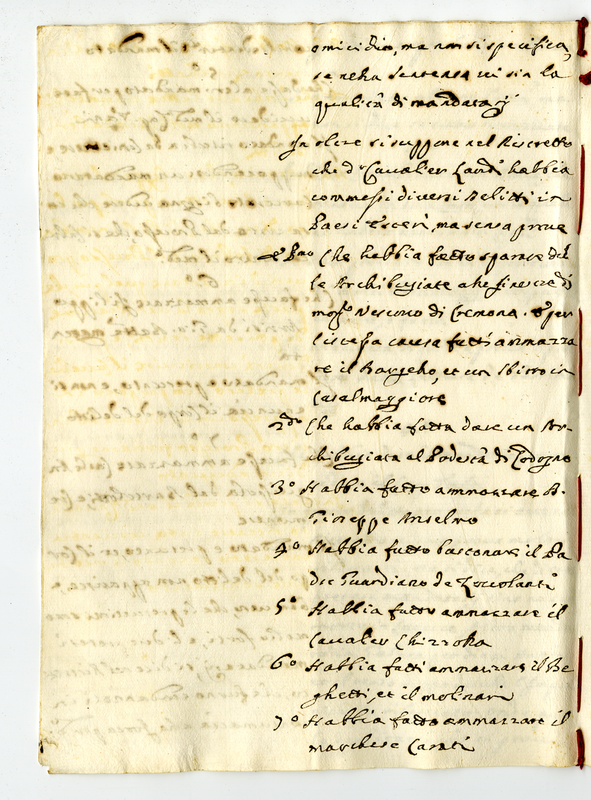 omicidio, ma non si specifica,
se nella sentenza vi sia la
qualità di mandatarij
In oltre si suppone nel Ristretto
che d.º Cavalier Landi habbia
commessi diversi delitti in
Paesi Esteri, ma senza prove
Che habbia fatto sparare del
le Archibugiate alle finestre di
monsr Vescovo di Cremona. e per
l'istessa causa fatti ammazza
re il Bargello, et un Sbirro in
Casalmaggiore
2do Che habbia fatta dare un Ar-
chibugiata al Podestà di Codogno
3º Habbia fatto ammazzare
Gioseppe Anselmo
4º Habbia fatto bastonare il Pa
dre Guardiano de Zoccolanti
5º Habbia fatto ammazzare il
Cavalier
6º Habbia fatti ammazzare il Be
ghetti, et il molinari
7º Habbia fatto ammazzare il
marchese